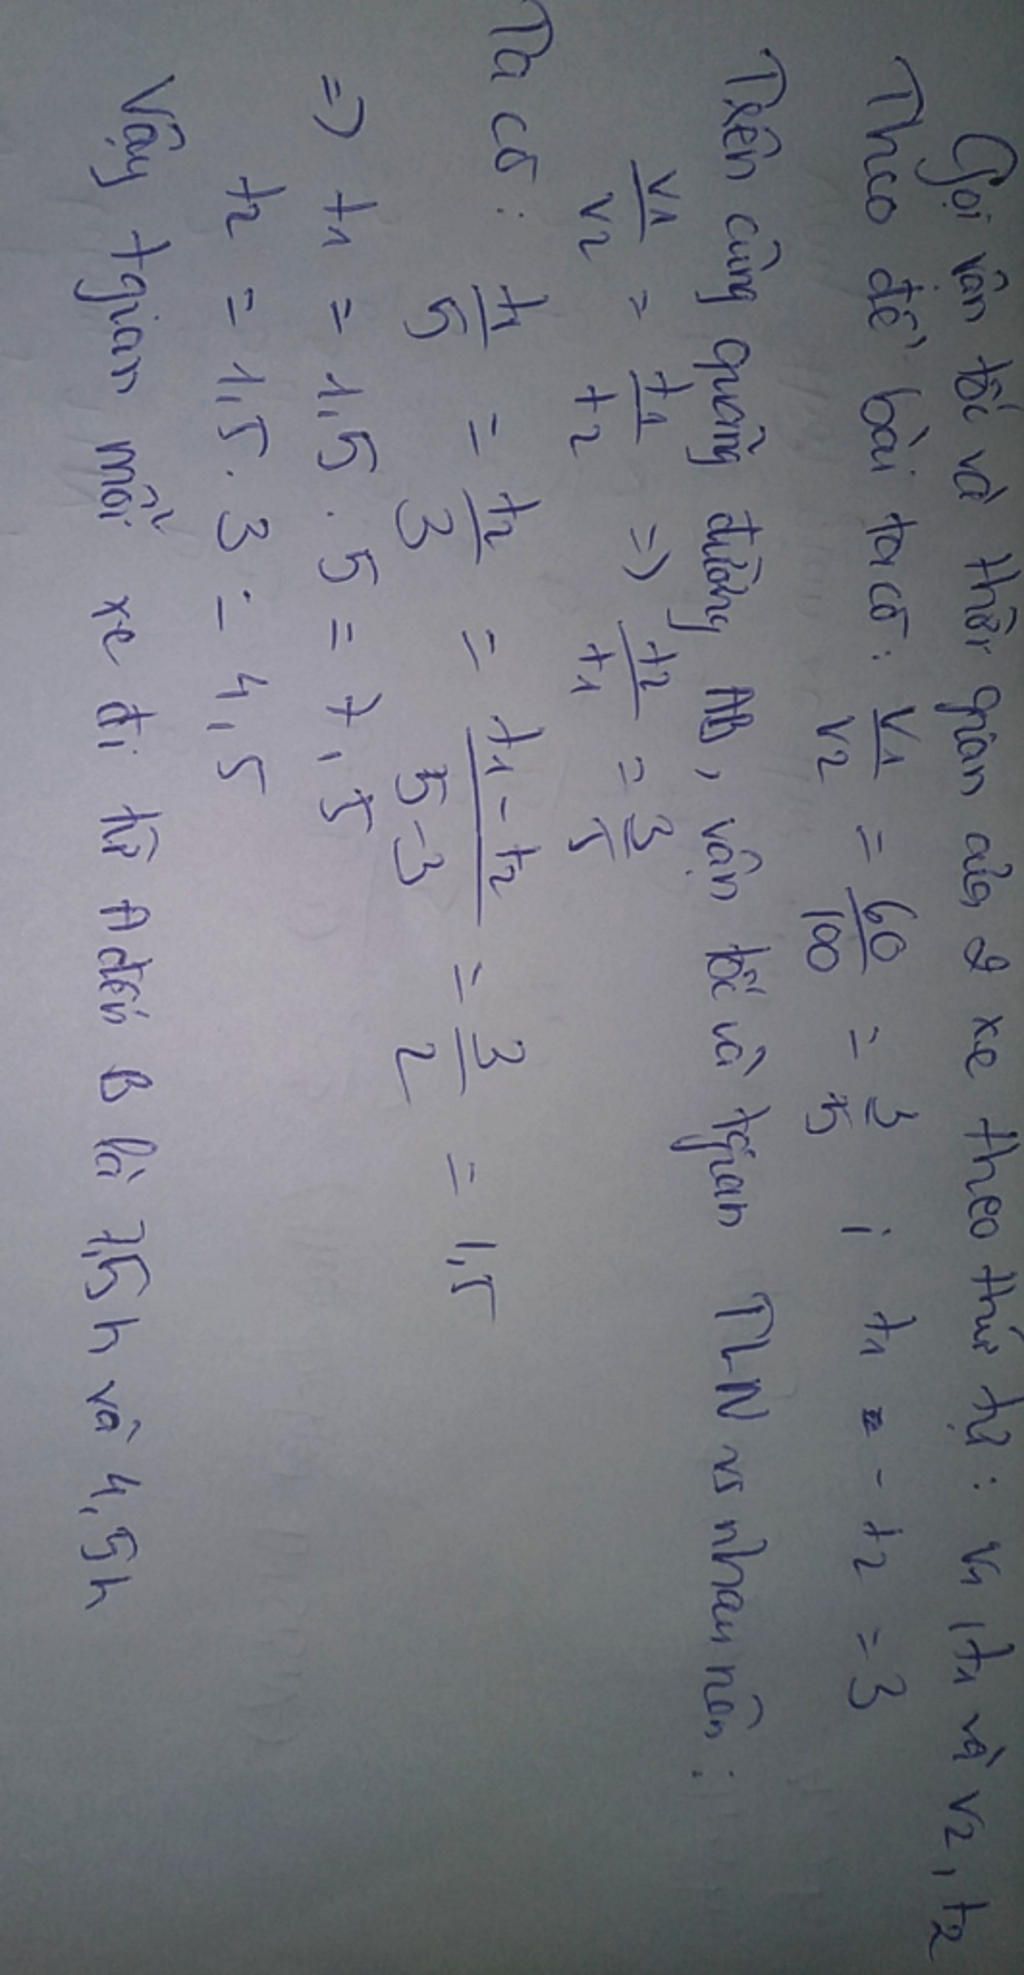 Gọi vân tốc và thời gian của 2 xe theo thứ tự: v1, t1 và v2, t2
Theo đề bài ta có: v1/v2 = 60/100 = 3/5 ; t1 - t2 = 3
Trên cùng quãng đường AB, vận tốc và tgian TLN vs nhau nên:
v1/v2 = t1/t2 => t2/t1 = 3/5
Ta có: t1/5 = t2/3 = t1-t2/5-3 = 3/2 = 1,5
=> t1 = 1,5 . 5 = 7,5
t2 = 1,5 . 3 = 4,5
Vậy tgian mỗi xe đi từ A đến B là 7,5h và 4,5h